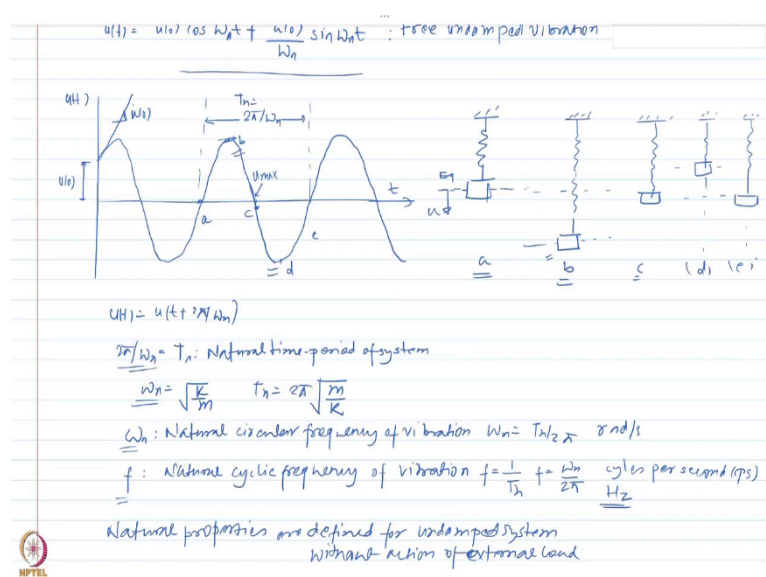 u(t) = u(0) cos ωnt + u̇(0)/ωn sin ωnt : free undamped vibration
u(t)
u̇(0)
Tn = 2π/ωn
b
u(0)
umax
t
a
c
e
d
Eq
u
a b c (d) (e)
u(t) = u(t + 2π/ωn)
2π/ωn = Tn : Natural time-period of system
ωn = √K/m Tn = 2π √m/K
ωn : Natural circular frequency of vibration ωn = Tn/2π rad/s
f : Natural cyclic frequency of vibration f = 1/Tn f = ωn/2π cyles per second (cps)
Hz
Natural properties are defined for undamped system
without action of external load
NPTEL